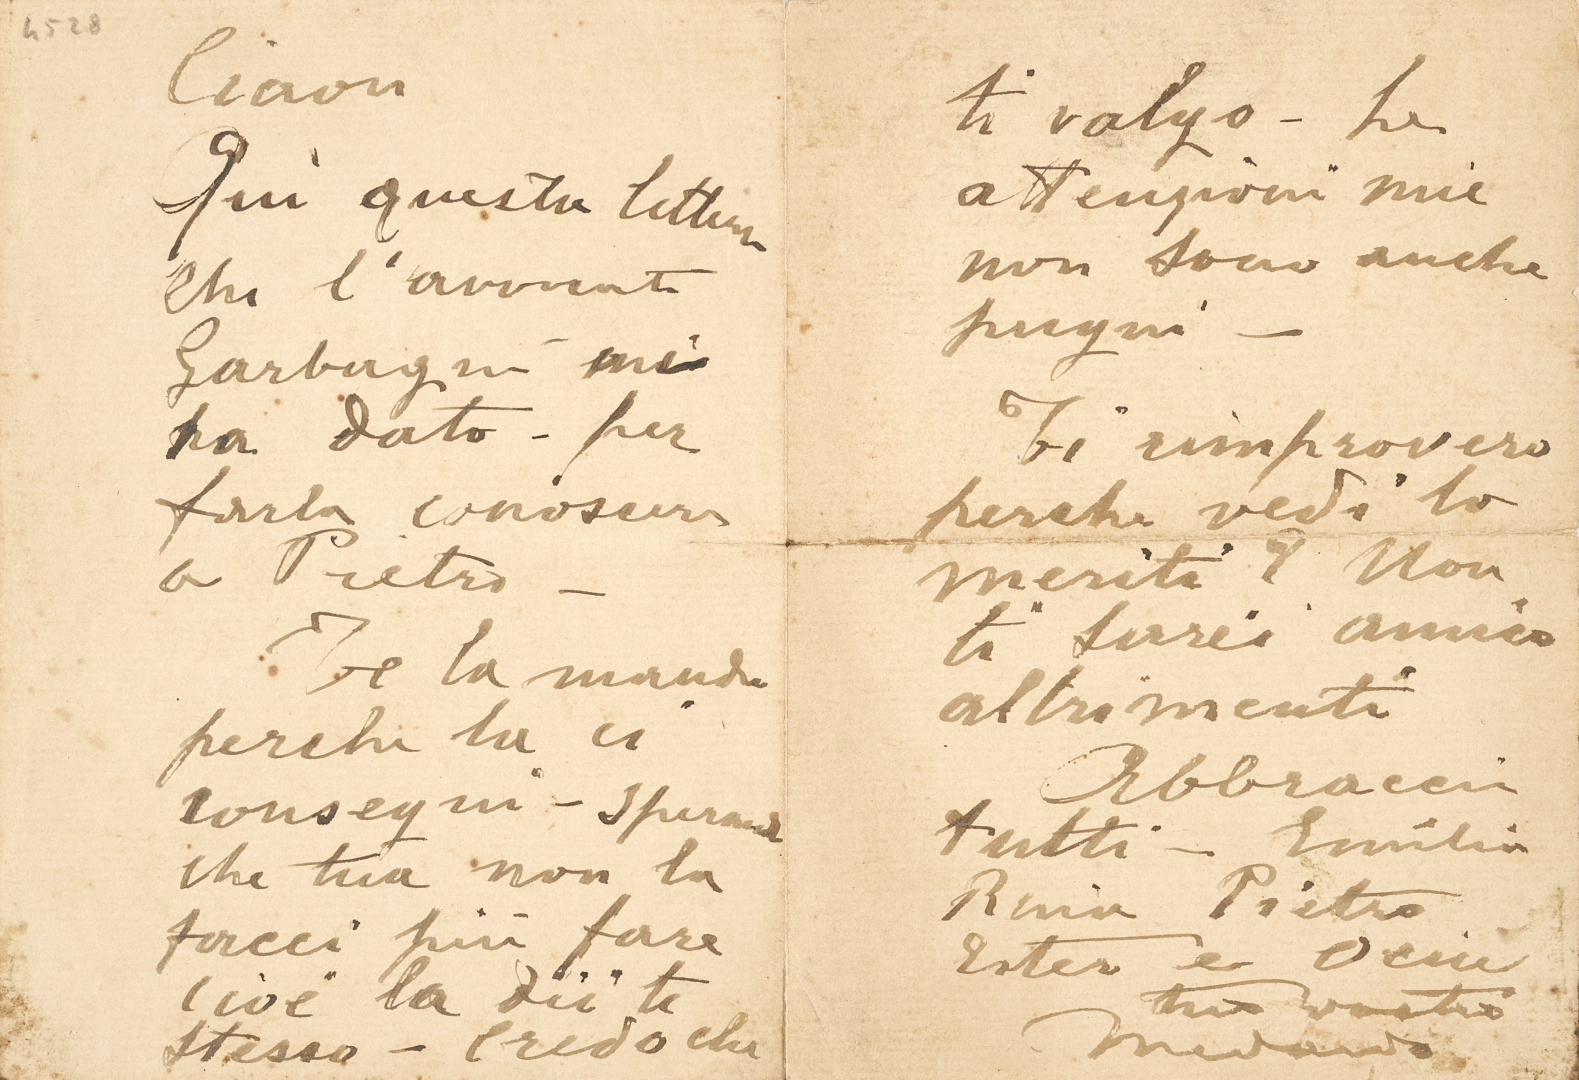 4528
Ciaon
Qui questa lettera
che l'avvocato
Garbagni mi
ha dato - per
farla conoscere
a Pietro -
Te la mando
perche la ci
consegni - sperando
che tua non la
facci più fare
cioè la dii te
stesso - credo che
ti valgo - he
attenzioni mie
non sono anche
pugni -
Ti rimprovero
perche vedi lo
meriti? Non
ti sarei amico
altrimenti
Abbracci
tutti - Emilia
Pietro
Ester e
tuo vostro
Medardo